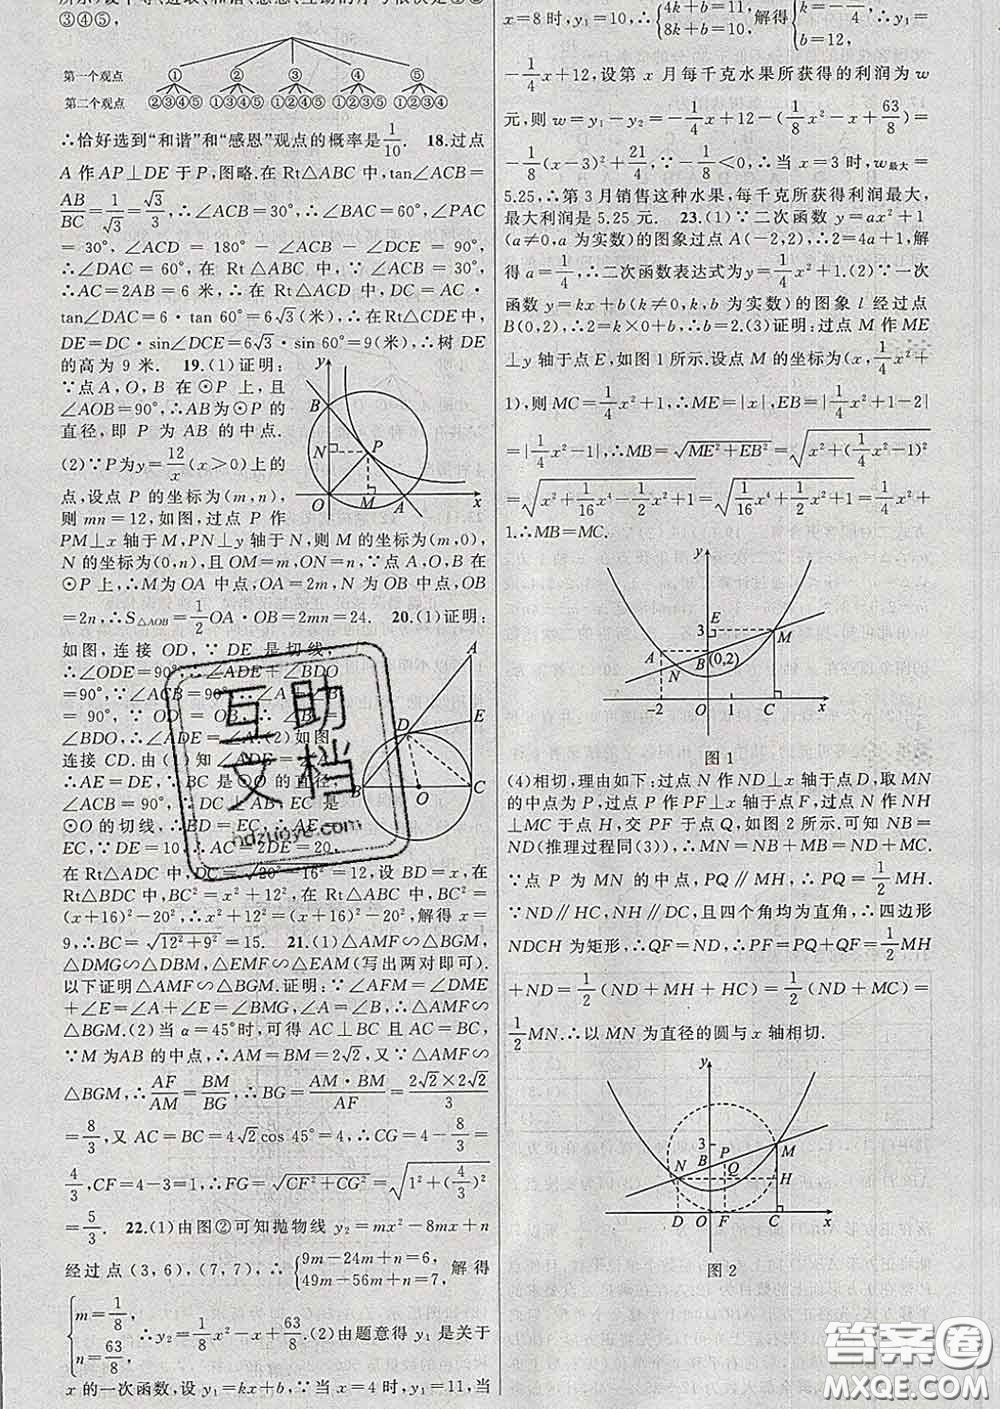 ③④⑤，
第一个观点 ① ② ③ ④ ⑤
第二个观点 ②③④⑤ ①③④⑤ ①②④⑤ ①②③⑤ ①②③④
∴恰好选到“和谐”和“感恩”观点的概率是1/10. 18.过点
A作AP⊥DE于P，图略.在Rt△ABC中，tan∠ACB=
AB/BC=1/√3=√3/3，∴∠ACB=30°，∠BAC=60°，∠PAC
=30°，∠ACD=180°-∠ACB-∠DCE=90°，
∴∠DAC=60°，在Rt△ABC中，∵∠ACB=30°，
∴AC=2AB=6米，∴在Rt△ACD中，DC=AC·
tan∠DAC=6·tan 60°=6√3(米)，∴在Rt△CDE中，
DE=DC·sin∠DCE=6√3·sin 60°=9(米)，∴树DE
的高为9米. 19.(1)证明：
∵点A，O，B在⊙P上，且
∠AOB=90°，∴AB为⊙P的
直径，即P为AB的中点.
(2)∵P为y=12/x(x>0)上的
点，设点P的坐标为(m，n)，
则mn=12，如图，过点P作
PM⊥x轴于M，PN⊥y轴于N，则M的坐标为(m，0)，
N的坐标为(0，n)，且OM=m，ON=n，∵点A，O，B在
⊙P上，∴M为OA中点，OA=2m，N为OB中点，OB
=2n，∴S△AOB=1/2OA·OB=2mn=24. 20.(1)证明：
如图，连接OD，∵DE是切线，
∴∠ODE=90°，∴∠ADE+∠BDO
=90°，∵∠ACB=90°，∴∠A+∠B
=90°，∵OD=OB，∴∠B=
∠BDO，∴∠ADE=∠A.(2)如图，
连接CD.由(1)知∠ADE=∠A，
∴AE=DE，∵BC是⊙O的直径，
∠ACB=90°，∴DC⊥AB，EC是
⊙O的切线，∴BD=EC，∴AE=
EC，∵DE=10，∴AC=2DE=20，
在Rt△ADC中，DC=√20²-16²=12，设BD=x，在
Rt△BDC中，BC²=x²+12²，在Rt△ABC中，BC²=
(x+16)²-20²，∴x²+12²=(x+16)²-20²，解得x=
9，∴BC=√12²+9²=15. 21.(1)△AMF∽△BGM，
△DMG∽△DBM，△EMF∽△EAM(写出两对即可).
以下证明△AMF∽△BGM.证明：∵∠AFM=∠DME
+∠E=∠A+∠E=∠BMG，∠A=∠B，∴△AMF∽
△BGM.(2)当α=45°时，可得AC⊥BC且AC=BC，
∵M为AB的中点，∴AM=BM=2√2，又∵△AMF∽
△BGM，∴AF/AM=BM/BG，∴BG=AM·BM/AF=2√2×2√2/3
=8/3，又AC=BC=4√2cos 45°=4，∴CG=4-8/3=
4/3，CF=4-3=1，∴FG=√CF²+CG²=√1²+(4/3)²
=5/3. 22.(1)由图②可知抛物线y₂=mx²-8mx+n
经过点(3，6)，(7，7)，∴{9m-24m+n=6，49m-56m+n=7，解得
{m=1/8，n=63/8，∴y₂=1/8x²-x+63/8.(2)由题意得y₁是关于
x的一次函数，设y₁=kx+b，∵当x=4时，y₁=11，当
y B N P O M A x
A E D B O C
x=8时，y₁=10，∴{4k+b=11，8k+b=10，解得{k=-1/4，b=12，∴y₁=
-1/4x+12，设第x月每千克水果所获得的利润为w
元，则w=y₁-y₂=-1/4x+12-(1/8x²-x+63/8)=
-1/8(x-3)²+21/4，∵-1/8<0，∴当x=3时，w最大=
5.25，∴第3月销售这种水果，每千克所获得利润最大，
最大利润是5.25元. 23.(1)∵二次函数y=ax²+1
(a≠0，a为实数)的图象过点A(-2，2)，∴2=4a+1，解
得a=1/4，∴二次函数表达式为y=1/4x²+1.(2)∵一次
函数y=kx+b(k≠0，k，b为实数)的图象l经过点
B(0，2)，∴2=k×0+b，∴b=2.(3)证明：过点M作ME
⊥y轴于点E，如图1所示.设点M的坐标为(x，1/4x²+
1)，则MC=1/4x²+1，∴ME=|x|，EB=|1/4x²+1-2|
=|1/4x²-1|，∴MB=√ME²+EB²=√x²+(1/4x²-1)²
=√x²+1/16x⁴-1/2x²+1=√1/16x⁴+1/2x²+1=1/4x²+
1.∴MB=MC.
y E 3 M A B (0,2) N -2 O 1 C x
图1
(4)相切，理由如下：过点N作ND⊥x轴于点D，取MN
的中点为P，过点P作PF⊥x轴于点F，过点N作NH
⊥MC于点H，交PF于点Q，如图2所示.可知NB=
ND(推理过程同(3))，∴MN=NB+MB=ND+MC.
∵点P为MN的中点，PQ∥MH，∴PQ=1/2MH.
∵ND∥HC，NH∥DC，且四个角均为直角，∴四边形
NDCH为矩形，∴QF=ND，∴PF=PQ+QF=1/2MH
+ND=1/2(ND+MH+HC)=1/2(ND+MC)=
1/2MN.∴以MN为直径的圆与x轴相切.
y 3 M P B Q N H D O F C x
图2
互助文档
hdzuoye.com
答案圈
MXQE.COM